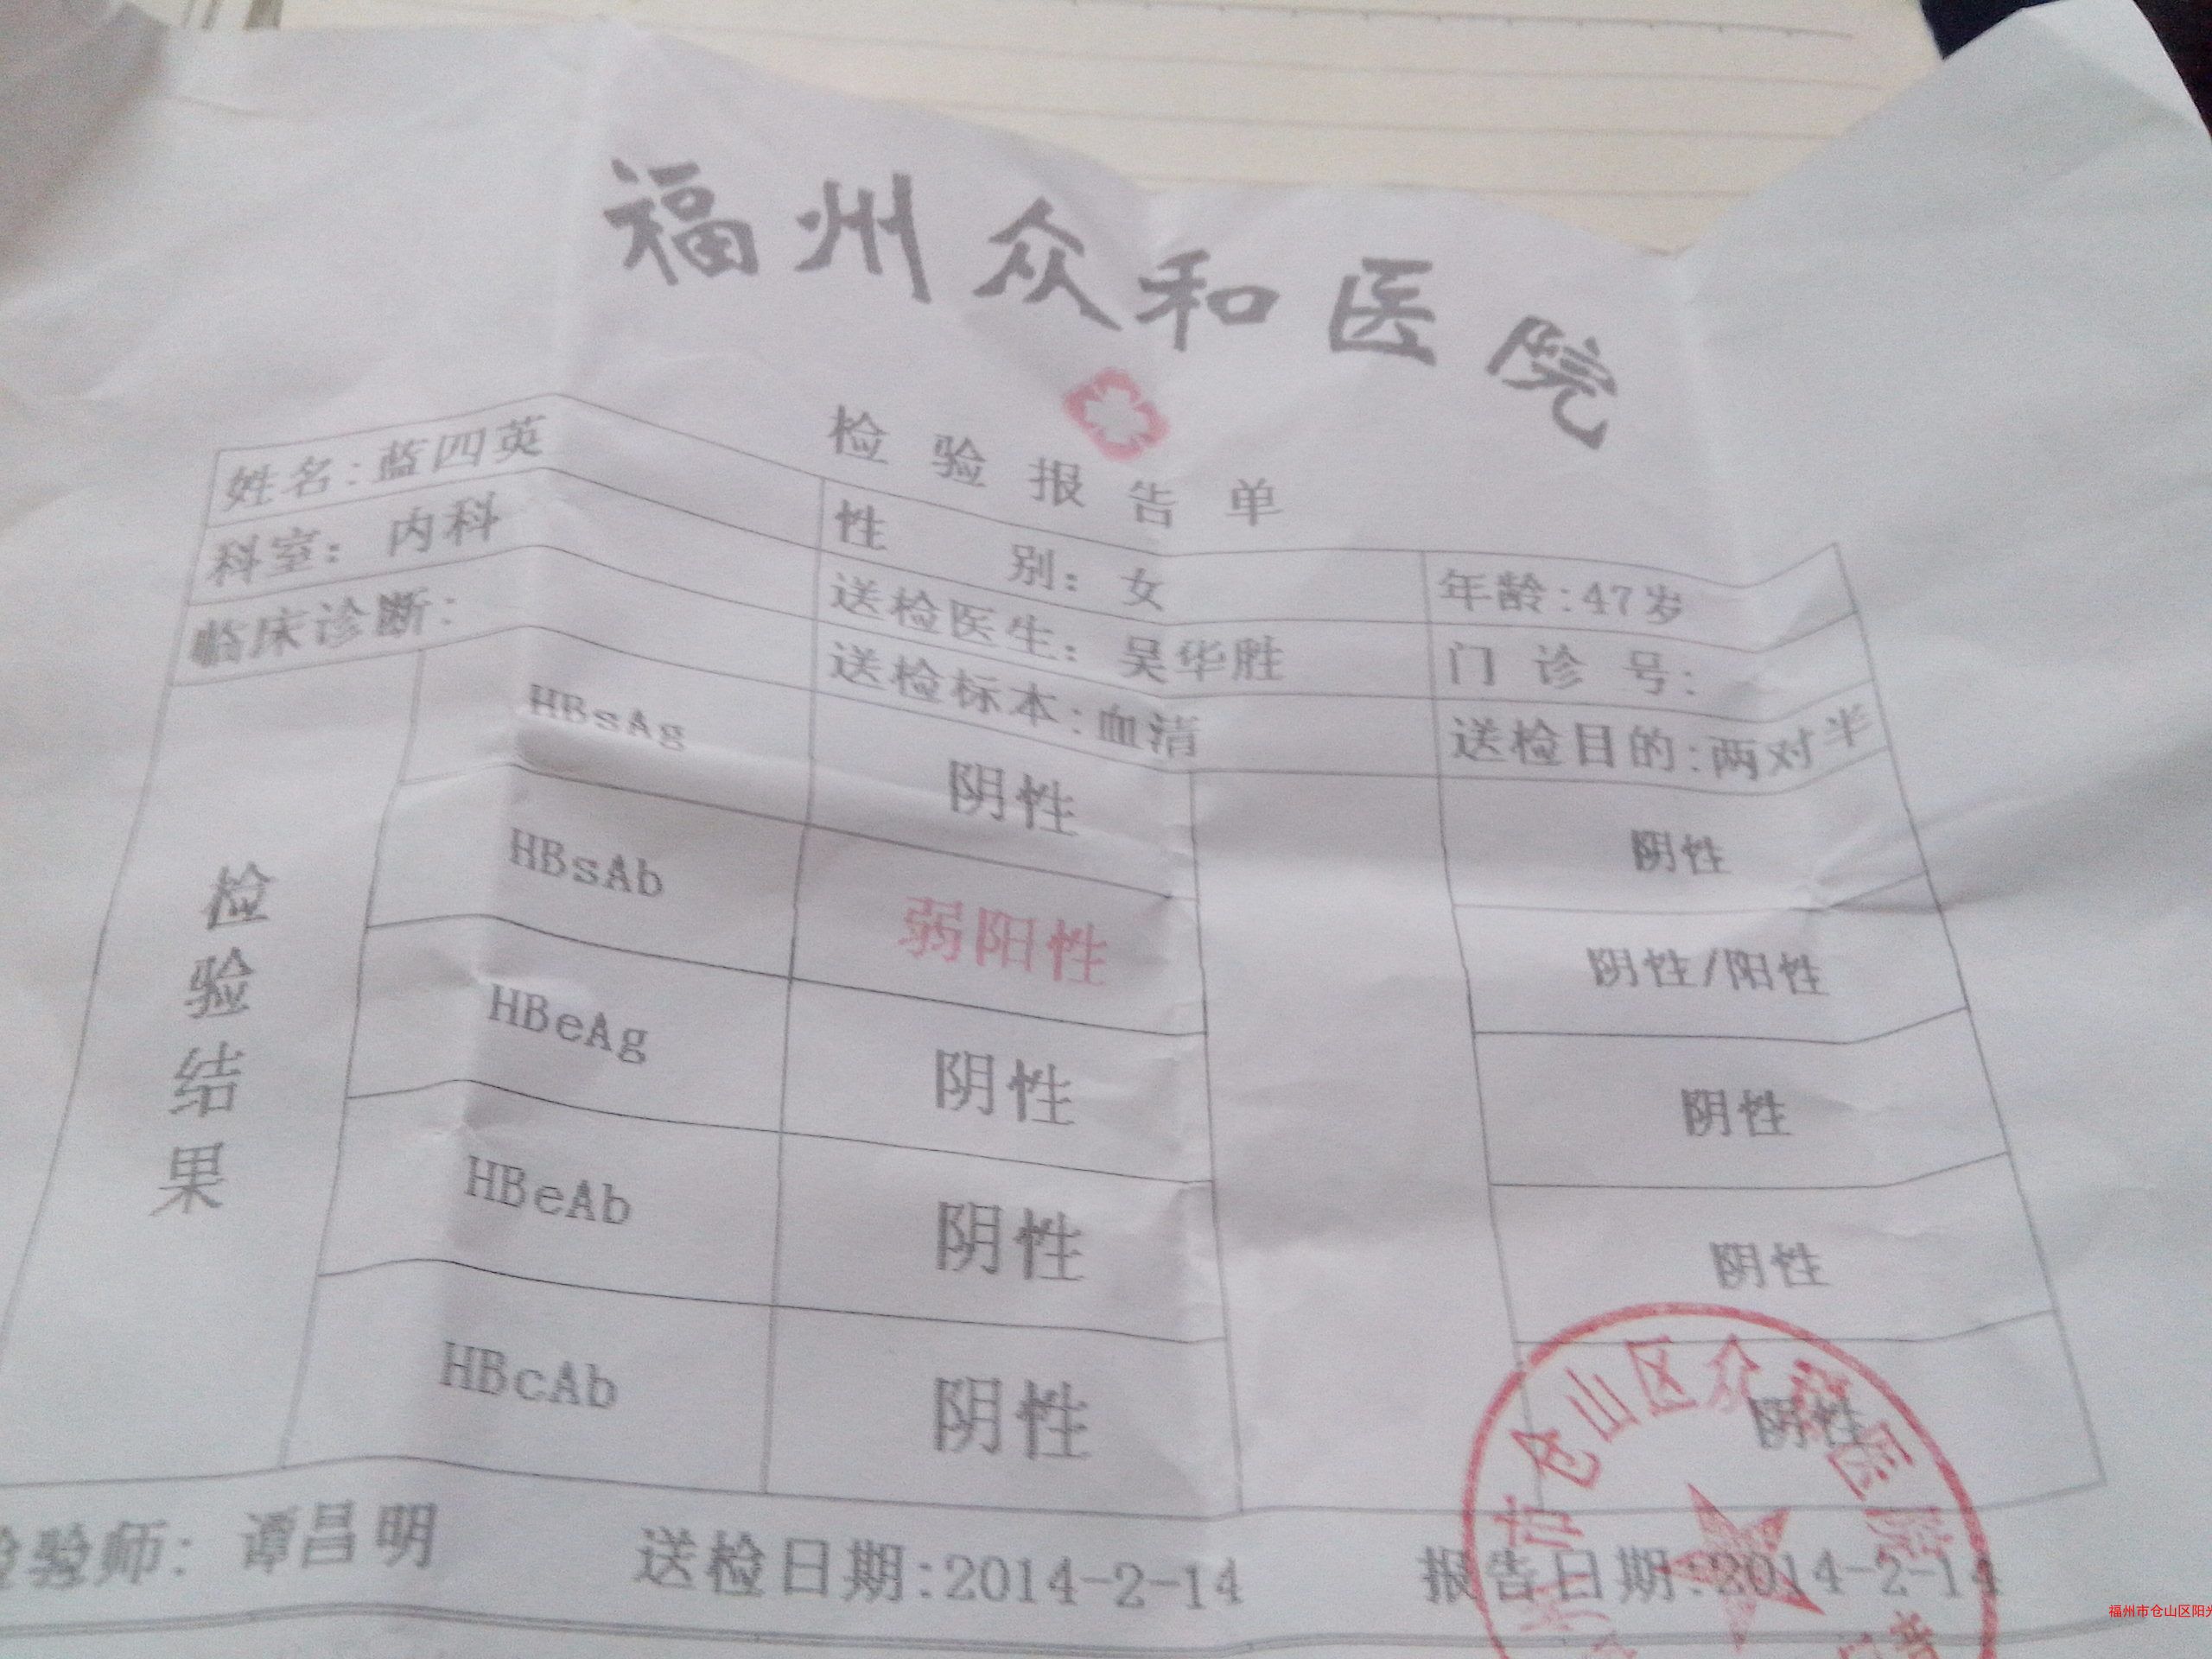 福州众和医院
检验报告单
姓名:蓝四英 性别:女 年龄:47岁
科室:内科 送检医生:吴华胜 门诊号:
临床诊断: 送检标本:血清 送检目的:两对半
检验结果
HBsAg 阴性 阴性
HBsAb 弱阳性 阴性/阳性
HBeAg 阴性 阴性
HBeAb 阴性 阴性
HBcAb 阴性 阴性
检验师:谭昌明 送检日期:2014-2-14 报告日期:2014-2-14
市仓山区众和医院
福州市仓山区阳光